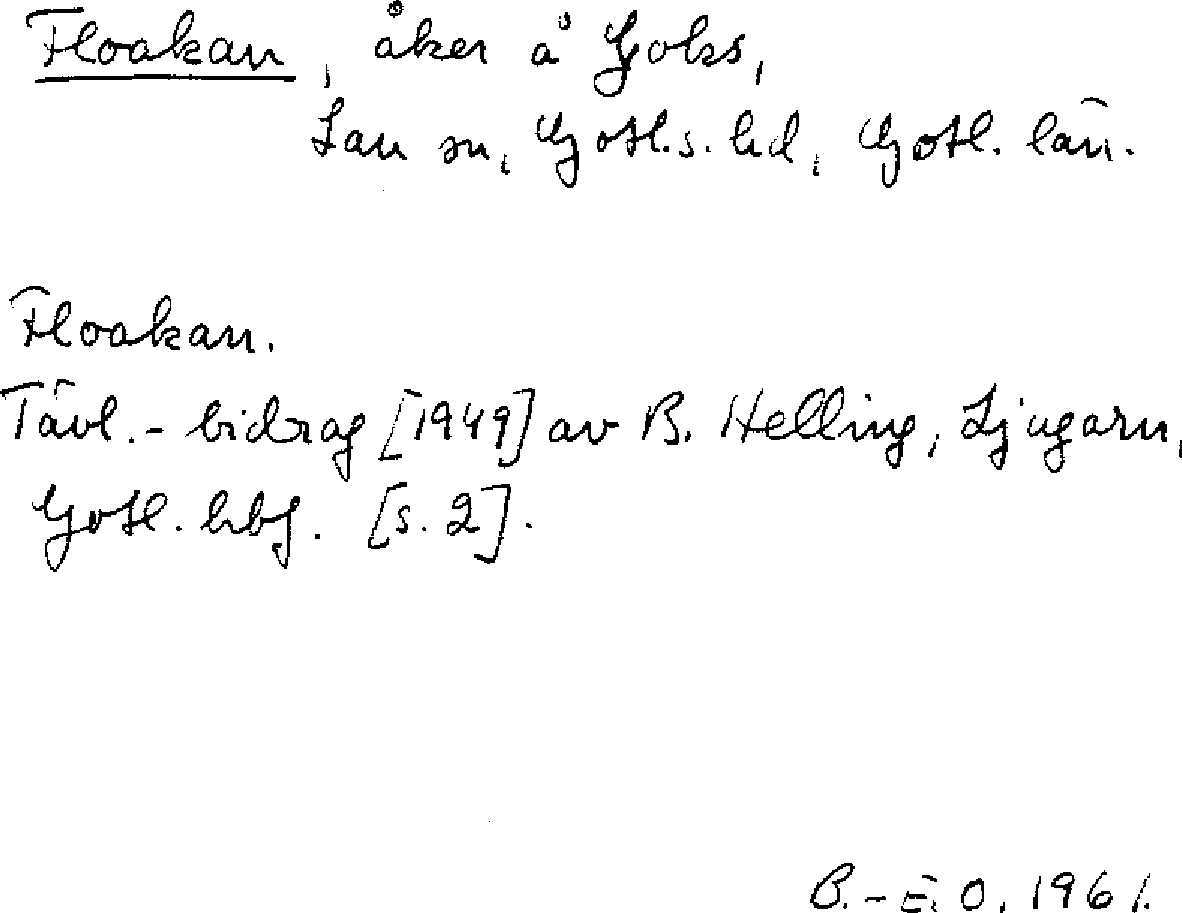 Floakan, åker å Goks,
Lau sn, Gotl.s. hd, Gotl. län.
Floakan.
Tävl.-bidrag [1949] av B. Helling, Ljugarn,
Gotl. hbf. [s. 2].
B.-E. O. 1961.